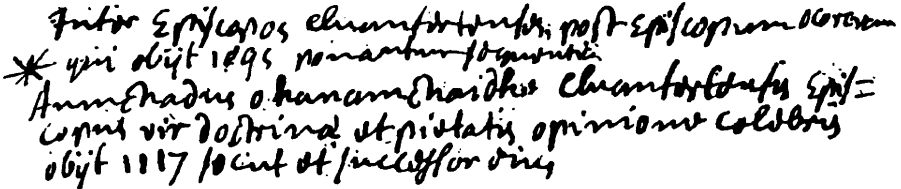 Inter Episcopos Cluanfertenses, post Episcopum ocorcran
qui obijt 1095 ponantur sequentia
Anmchadus o hanamchaidhe Cluanfertensis Epis=
copus vir doctrina et pietatis opinione celebris
obijt 1117 sicut et successor eius